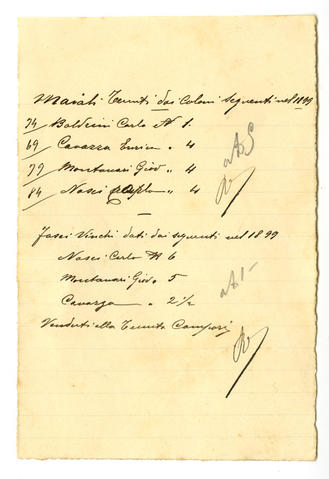 Maiali Tenuti dai Coloni seguenti nel 1899
74/ Baldini Carlo N 1.
69/ Cavazza Enrico „ 4
79/ Montanari Giod „ 4
84/ Nasci Carlo „ 4
Fasci Vinchi dati dai seguenti nel 1899
Nasci Carlo N 6
Montanari Giod „ 5
Cavazza „ 2 1/2
Venduti alla Tenuta Campori